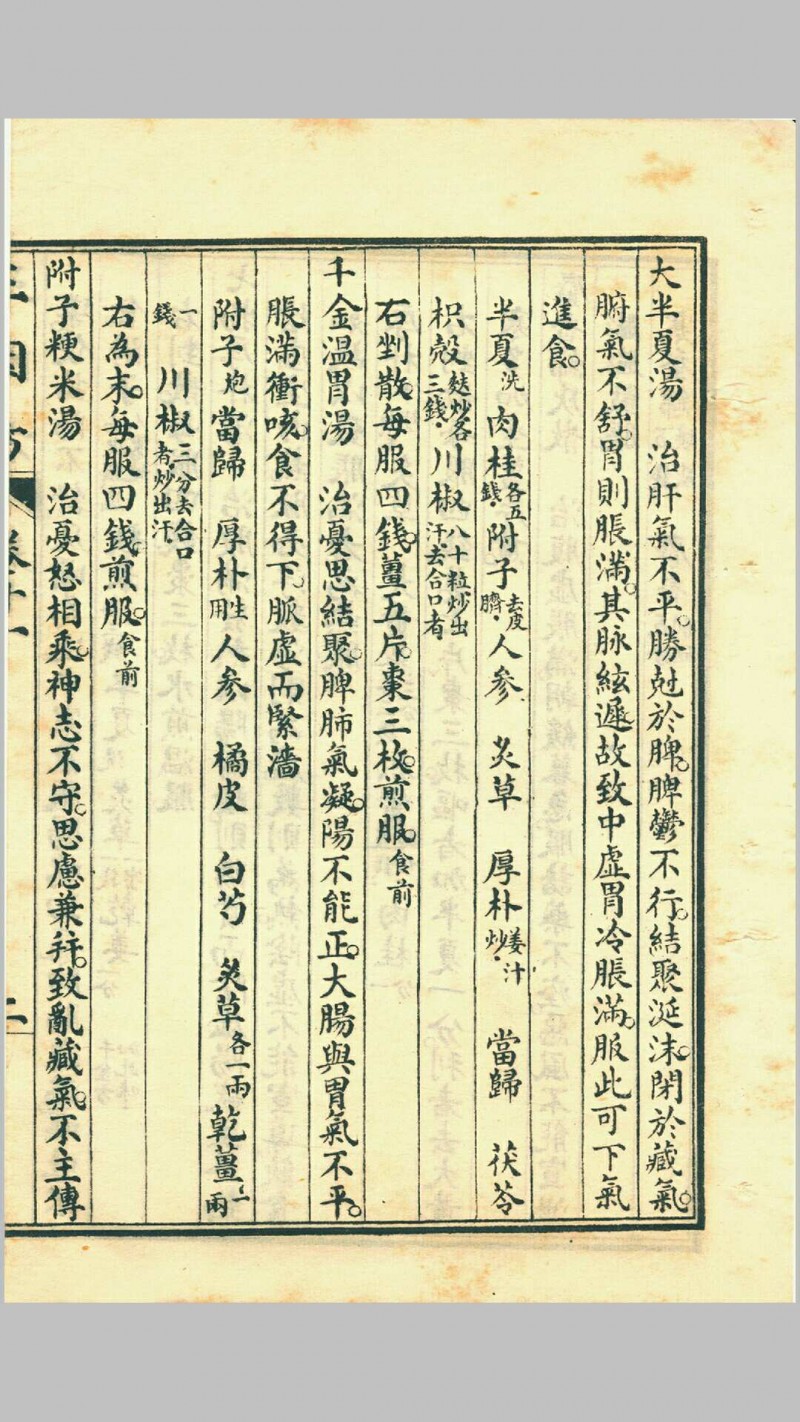 大半夏湯　治肝氣不平。勝尅於脾。脾鬱不行。結聚涎沫。閉於藏氣。
腑氣不舒。胃則脹滿。其脉絃遲。故致中虛胃冷脹滿。服此可下氣
進食。
半夏洗　肉桂各五錢　附子去皮臍　人參　炙草　厚朴姜汁炒　當歸　茯苓
枳殼麩炒各三錢　川椒八十粒炒出汗去合口者
右剉散。每服四錢。薑五片。棗三枚。煎服。食前
千金溫胃湯　治憂思結聚。脾肺氣凝。陽不能正。大腸與胃氣不平。
脹滿衝咳。食不得下。脈虛而緊濇
附子炮　當歸　厚朴生用　人參　橘皮　白芍　炙草各一兩　乾薑二兩
一錢　川椒三分去合口者炒出汗
右為末。每服四錢。煎服。食前
附子粳米湯　治憂怒相乘。神志不守。思慮兼并。致亂藏氣。不主傳
三因方　卷十一
二